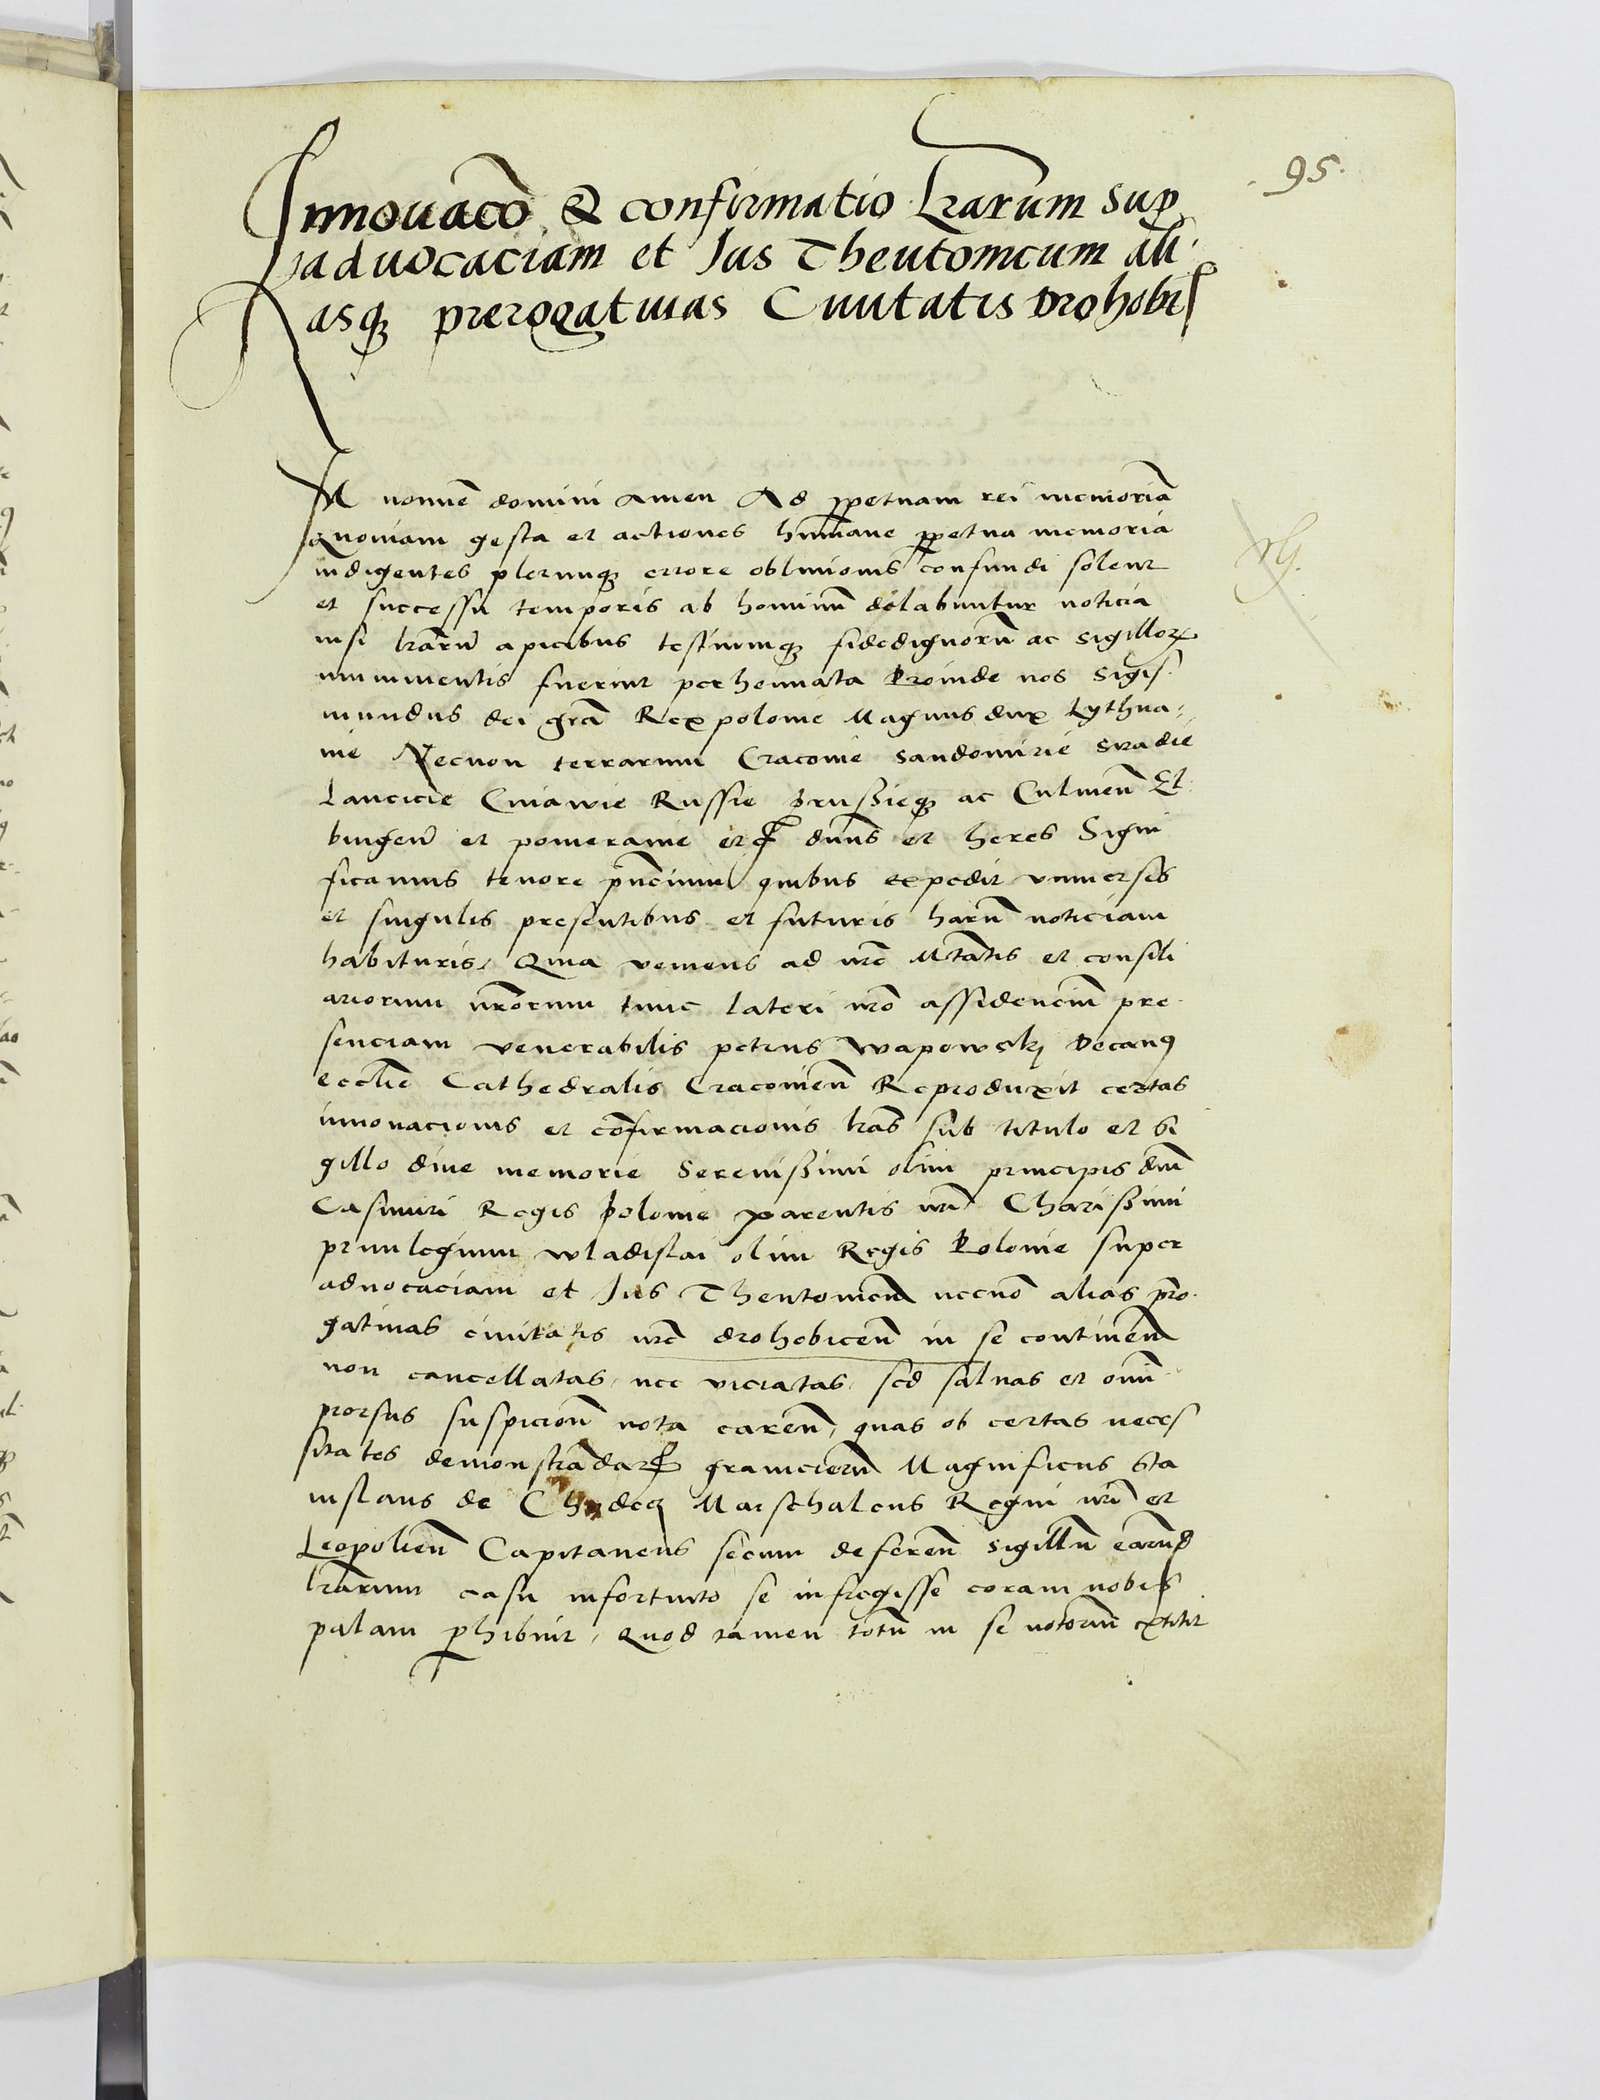 95.
Innouacõ & confirmatio Lrarum sup
aduocaciam et Ius Theutonicum ali
asq prerogatiuas Ciuitatis Drohobi
IN nomine domini Amen Ad ppetuam rei memoriã
Quoniam gesta et actiones humane ppetua memoria
indigentes plerunq errore obliuionis confundi solent
et successu temporis ab hominũ delabuntur noticia
nisi lrarũ apicibus testiumq fidedignorũ ac sigilloꝝ
munimentis fuerint perhennata Proinde nos Sigis
mundus dei grã Rex polonie Magnus dux Lythua
nie Necnon terrarum Cracouie Sandomirie Siradie
Lancicie Cuiawie Russie prussieq ac Culmeñ El
bingeñ et pomeranie etc dñus et heres Signi
ficamus tenore pñcium quibus expedit vniuersis
et singulis presentibus et futuris harũ noticiam
habituris, Quia veniens ad nrẽ Mtãtis et consili
ariorum nrõrum tunc lateri nrõ assidenciũ pre
senciam venerabilis petrus Wapowsky Decanꝯ
ecclie Cathedralis Cracouieñ Reproduxit certas
innouacionis et cõfirmacionis lrãs sub titulo et si
gillo diue memorie Serenissimi olim principis dñi
Casimiri Regis Polonie parentis nrĩ Charissimi
priuilegium wladislai olim Regis Polonie super
aduocaciam et Ius Theutonicũ necnõ alias prero
gatiuas ciuitatis nrẽ drohobiceñ in se contineñ
non cancellatas, nec viciatas, sed saluas et omni
prorsus suspicioñ nota careñ, quas ob certas neces
sitates demonstrãdar granicierũ Magnificus Sta
nislaus de Chodecz Marschalcus Regni nrĩ et
Leopolieñ Capitaneus secum defereñ sigillũ earund
lrarum casu infortuito se infregisse coram nobis
palam phibuit, Quod tamen totũ in se notoriũ extitit